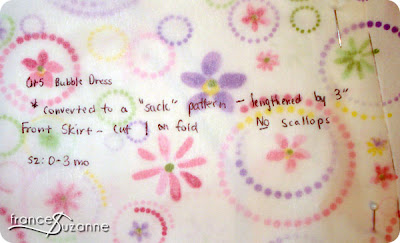 GHS Bubble Dress
* converted to a "sack" pattern - lengthened by 3"
Front Skirt - cut 1 on fold
NO scallops
sz: 0-3 mo
frances Suzanne